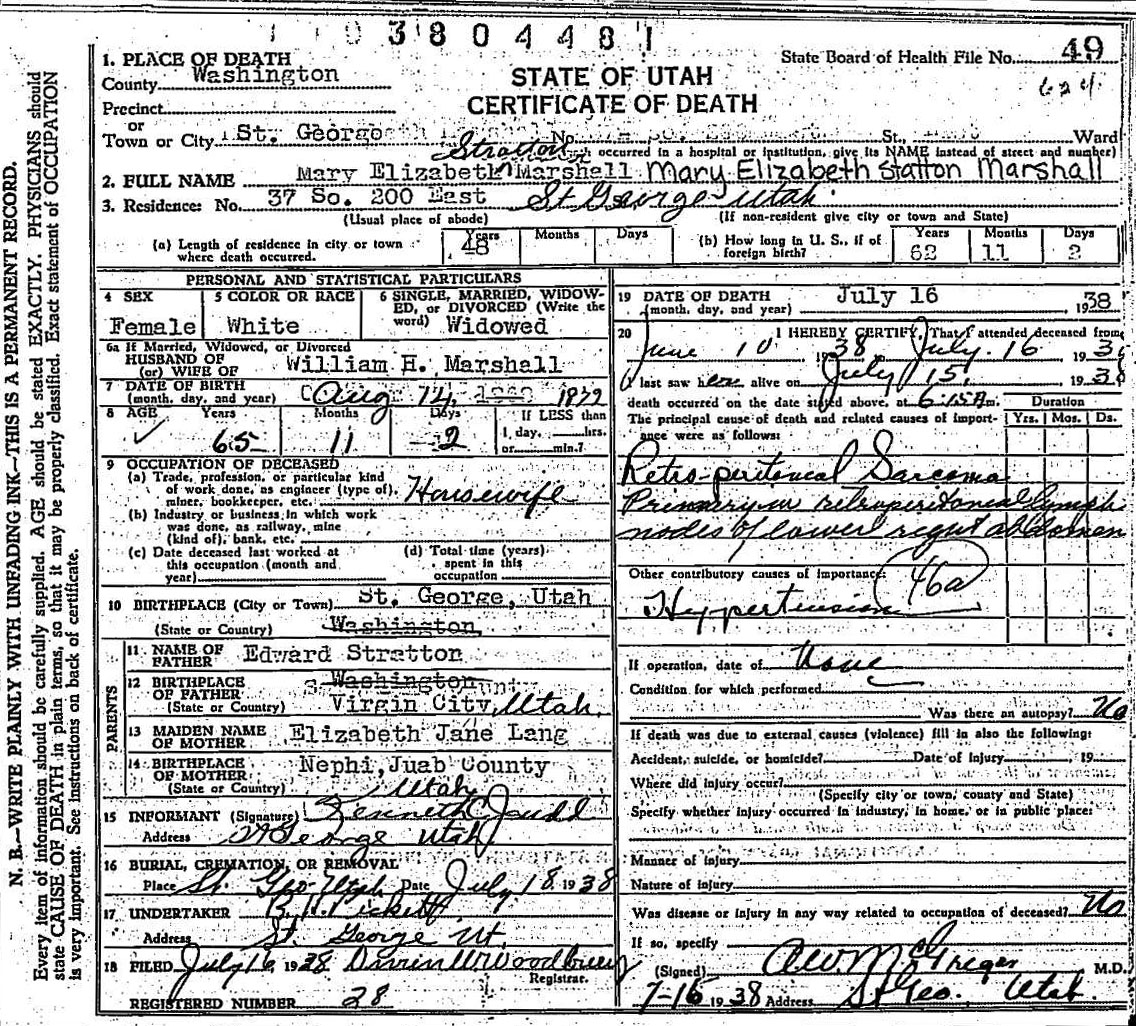 1 0 3 8 0 4 4 8 1
State Board of Health File No. 49
624
1. PLACE OF DEATH
County Washington
Precinct
or
Town or City St. George No. St., Ward
STATE OF UTAH
CERTIFICATE OF DEATH
occurred in a hospital or institution, give its NAME instead of street and number)
Stratton
2. FULL NAME Mary Elizabeth Marshall Mary Elizabeth Statton Marshall
3. Residence: No. 37 So. 200 East St George Utah
(Usual place of abode) (If non-resident give city or town and State)
(a) Length of residence in city or town where death occurred. Years 48 Months Days
(b) How long in U. S., if of foreign birth? Years 62 Months 11 Days 2
PERSONAL AND STATISTICAL PARTICULARS
4 SEX Female
5 COLOR OR RACE White
6 SINGLE, MARRIED, WIDOWED, OR DIVORCED (Write the word) Widowed
6a If Married, Widowed, or Divorced
HUSBAND OF
(or) WIFE OF William H. Marshall
7 DATE OF BIRTH
(month, day, and year) Aug 14, 1872
8 AGE Years 65 Months 11 Days 2
If LESS than
1 day, hrs.
or min.?
9 OCCUPATION OF DECEASED
(a) Trade, profession, or particular kind
of work done, as engineer (type of),
miner, bookkeeper, etc. Housewife
(b) Industry or business in which work
was done, as railway, mine
(kind of), bank, etc.
(c) Date deceased last worked at
this occupation (month and
year)
(d) Total time (years)
spent in this
occupation
10 BIRTHPLACE (City or Town) St. George, Utah
(State or Country) Washington
PARENTS
11 NAME OF
FATHER Edward Stratton
12 BIRTHPLACE
OF FATHER Washington
(State or Country) Virgin City, Utah
13 MAIDEN NAME
OF MOTHER Elizabeth Jane Lang
14 BIRTHPLACE
OF MOTHER Nephi, Juab County
(State or Country) Utah
15 INFORMANT (Signature) Kenneth C Judd
Address St George Utah
16 BURIAL, CREMATION, OR REMOVAL
Place St. Geo-Utah Date July 18, 1938
17 UNDERTAKER B. H. Pickett
Address St. George Ut.
18 FILED July 16 1938
Registrar.
REGISTERED NUMBER 28
19 DATE OF DEATH
(month, day, and year) July 16 1938
20 I HEREBY CERTIFY, That I attended deceased from
June 10 1938 to July 16 193
I last saw her alive on July 15, 1938
death occurred on the date stated above, at 6:15 A m.
Duration
The principal cause of death and related causes of importance were as follows:
Yrs. Mos. Ds.
Retro-peritoneal Sarcoma
Primary in retroperitoneal lymph
nodes of lower right abdomen
Other contributory causes of importance: 46a
Hypertension
If operation, date of None
Condition for which performed
Was there an autopsy? No
If death was due to external causes (violence) fill in also the following:
Accident, suicide, or homicide? Date of injury , 19
Where did injury occur?
(Specify city or town, county and State)
Specify whether injury occurred in industry, in home, or in public place:
Manner of injury
Nature of injury
Was disease or injury in any way related to occupation of deceased? No
If so, specify
(Signed) A.W. McGregor M.D.
7-16 1938 Address St Geo. Utah.
N. B.—WRITE PLAINLY WITH UNFADING INK—THIS IS A PERMANENT RECORD.
Every item of information should be carefully supplied. AGE should be stated EXACTLY. PHYSICIANS should
state CAUSE OF DEATH in plain terms, so that it may be properly classified. Exact statement of OCCUPATION
is very important. See instructions on back of certificate.